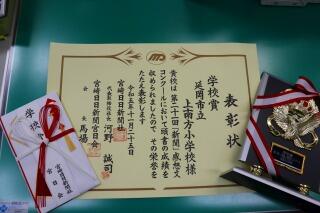 表彰状
学校賞
延岡市立
上南方小学校様
貴校は第二十一回「新聞」感想文
コンクールにおいて頭書の成績を
収められましたので その栄誉を
たたえ表彰します
令和五年十一月二十五日
宮崎日日新聞社
代表取締役社長 河野 誠司
宮崎日日新聞宮日会
会長 馬場
学校賞
宮崎日日新聞社
宮日会